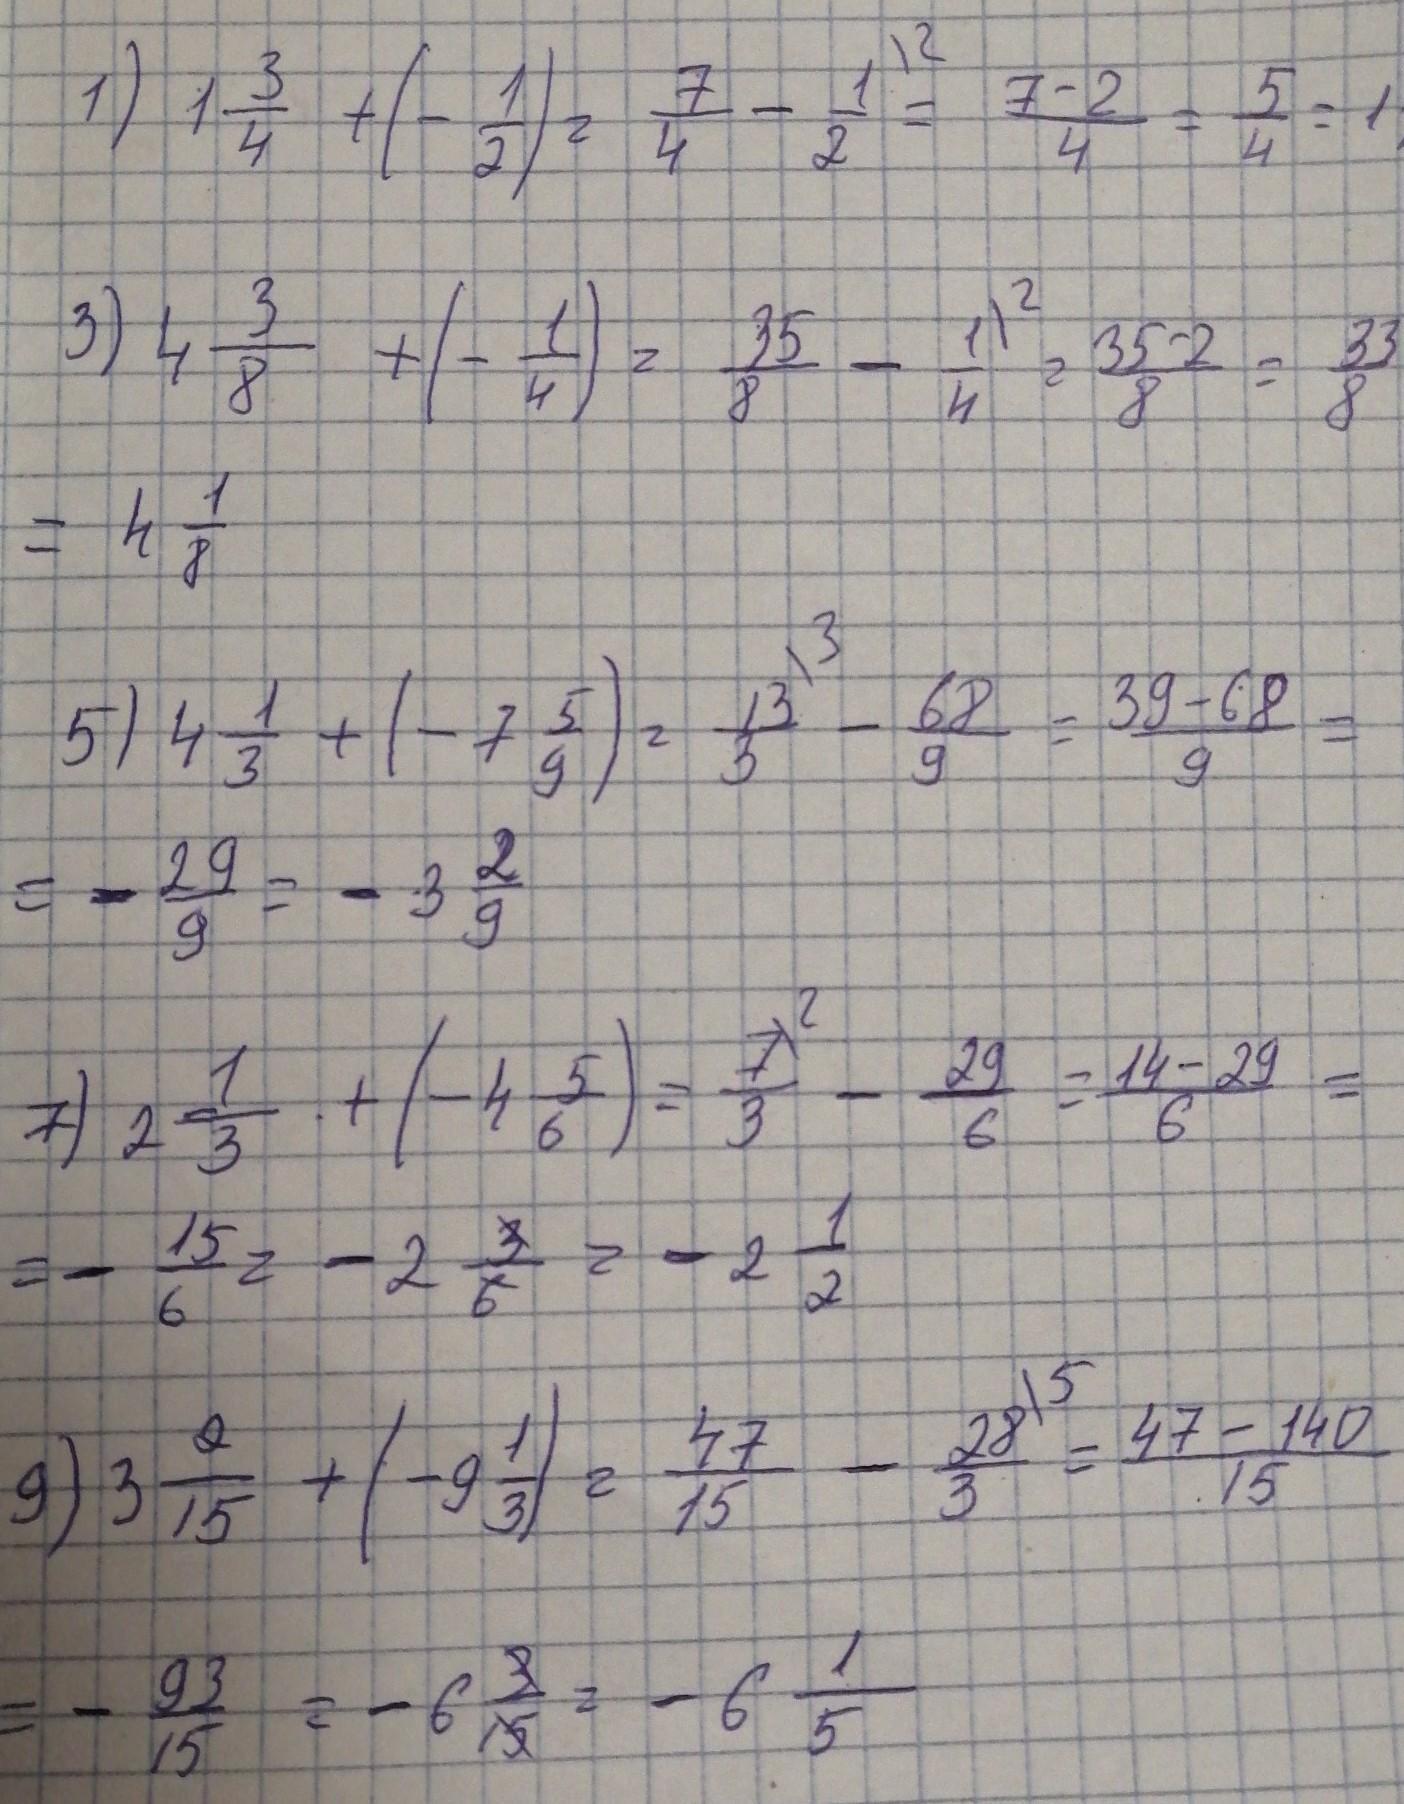 1) 1 3/4 + (- 1/2) = 7/4 - 1/2 \2 = 7-2/4 = 5/4 = 1
3) 4 3/8 + (- 1/4) = 35/8 - 1/4 \2 = 35-2/8 = 33/8
= 4 1/8
5) 4 1/3 + (- 7 5/9) = 13/3 \3 - 68/9 = 39-68/9 =
= - 29/9 = - 3 2/9
7) 2 1/3 + (- 4 5/6) = 7/3 \2 - 29/6 = 14-29/6 =
= - 15/6 = - 2 3/6 = - 2 1/2
9) 3 2/15 + (- 9 1/3) = 47/15 - 28/3 \5 = 47-140/15
= - 93/15 = - 6 3/15 = - 6 1/5